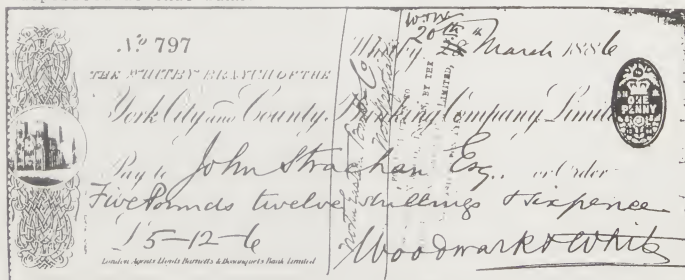 W.W.
20th
No 797
Whitby, 18 March 1886
THE WHITBY BRANCH OF THE
York City and County Banking Company, Limited
AN
ONE
PENNY
Pay to John Strachan Esq. or Order
Five Pounds twelve shillings & Sixpence
£5-12-6
Woodwark & White
London Agents Lloyds Barnetts & Bosanquets Bank Limited
BY THE
LIMITED,